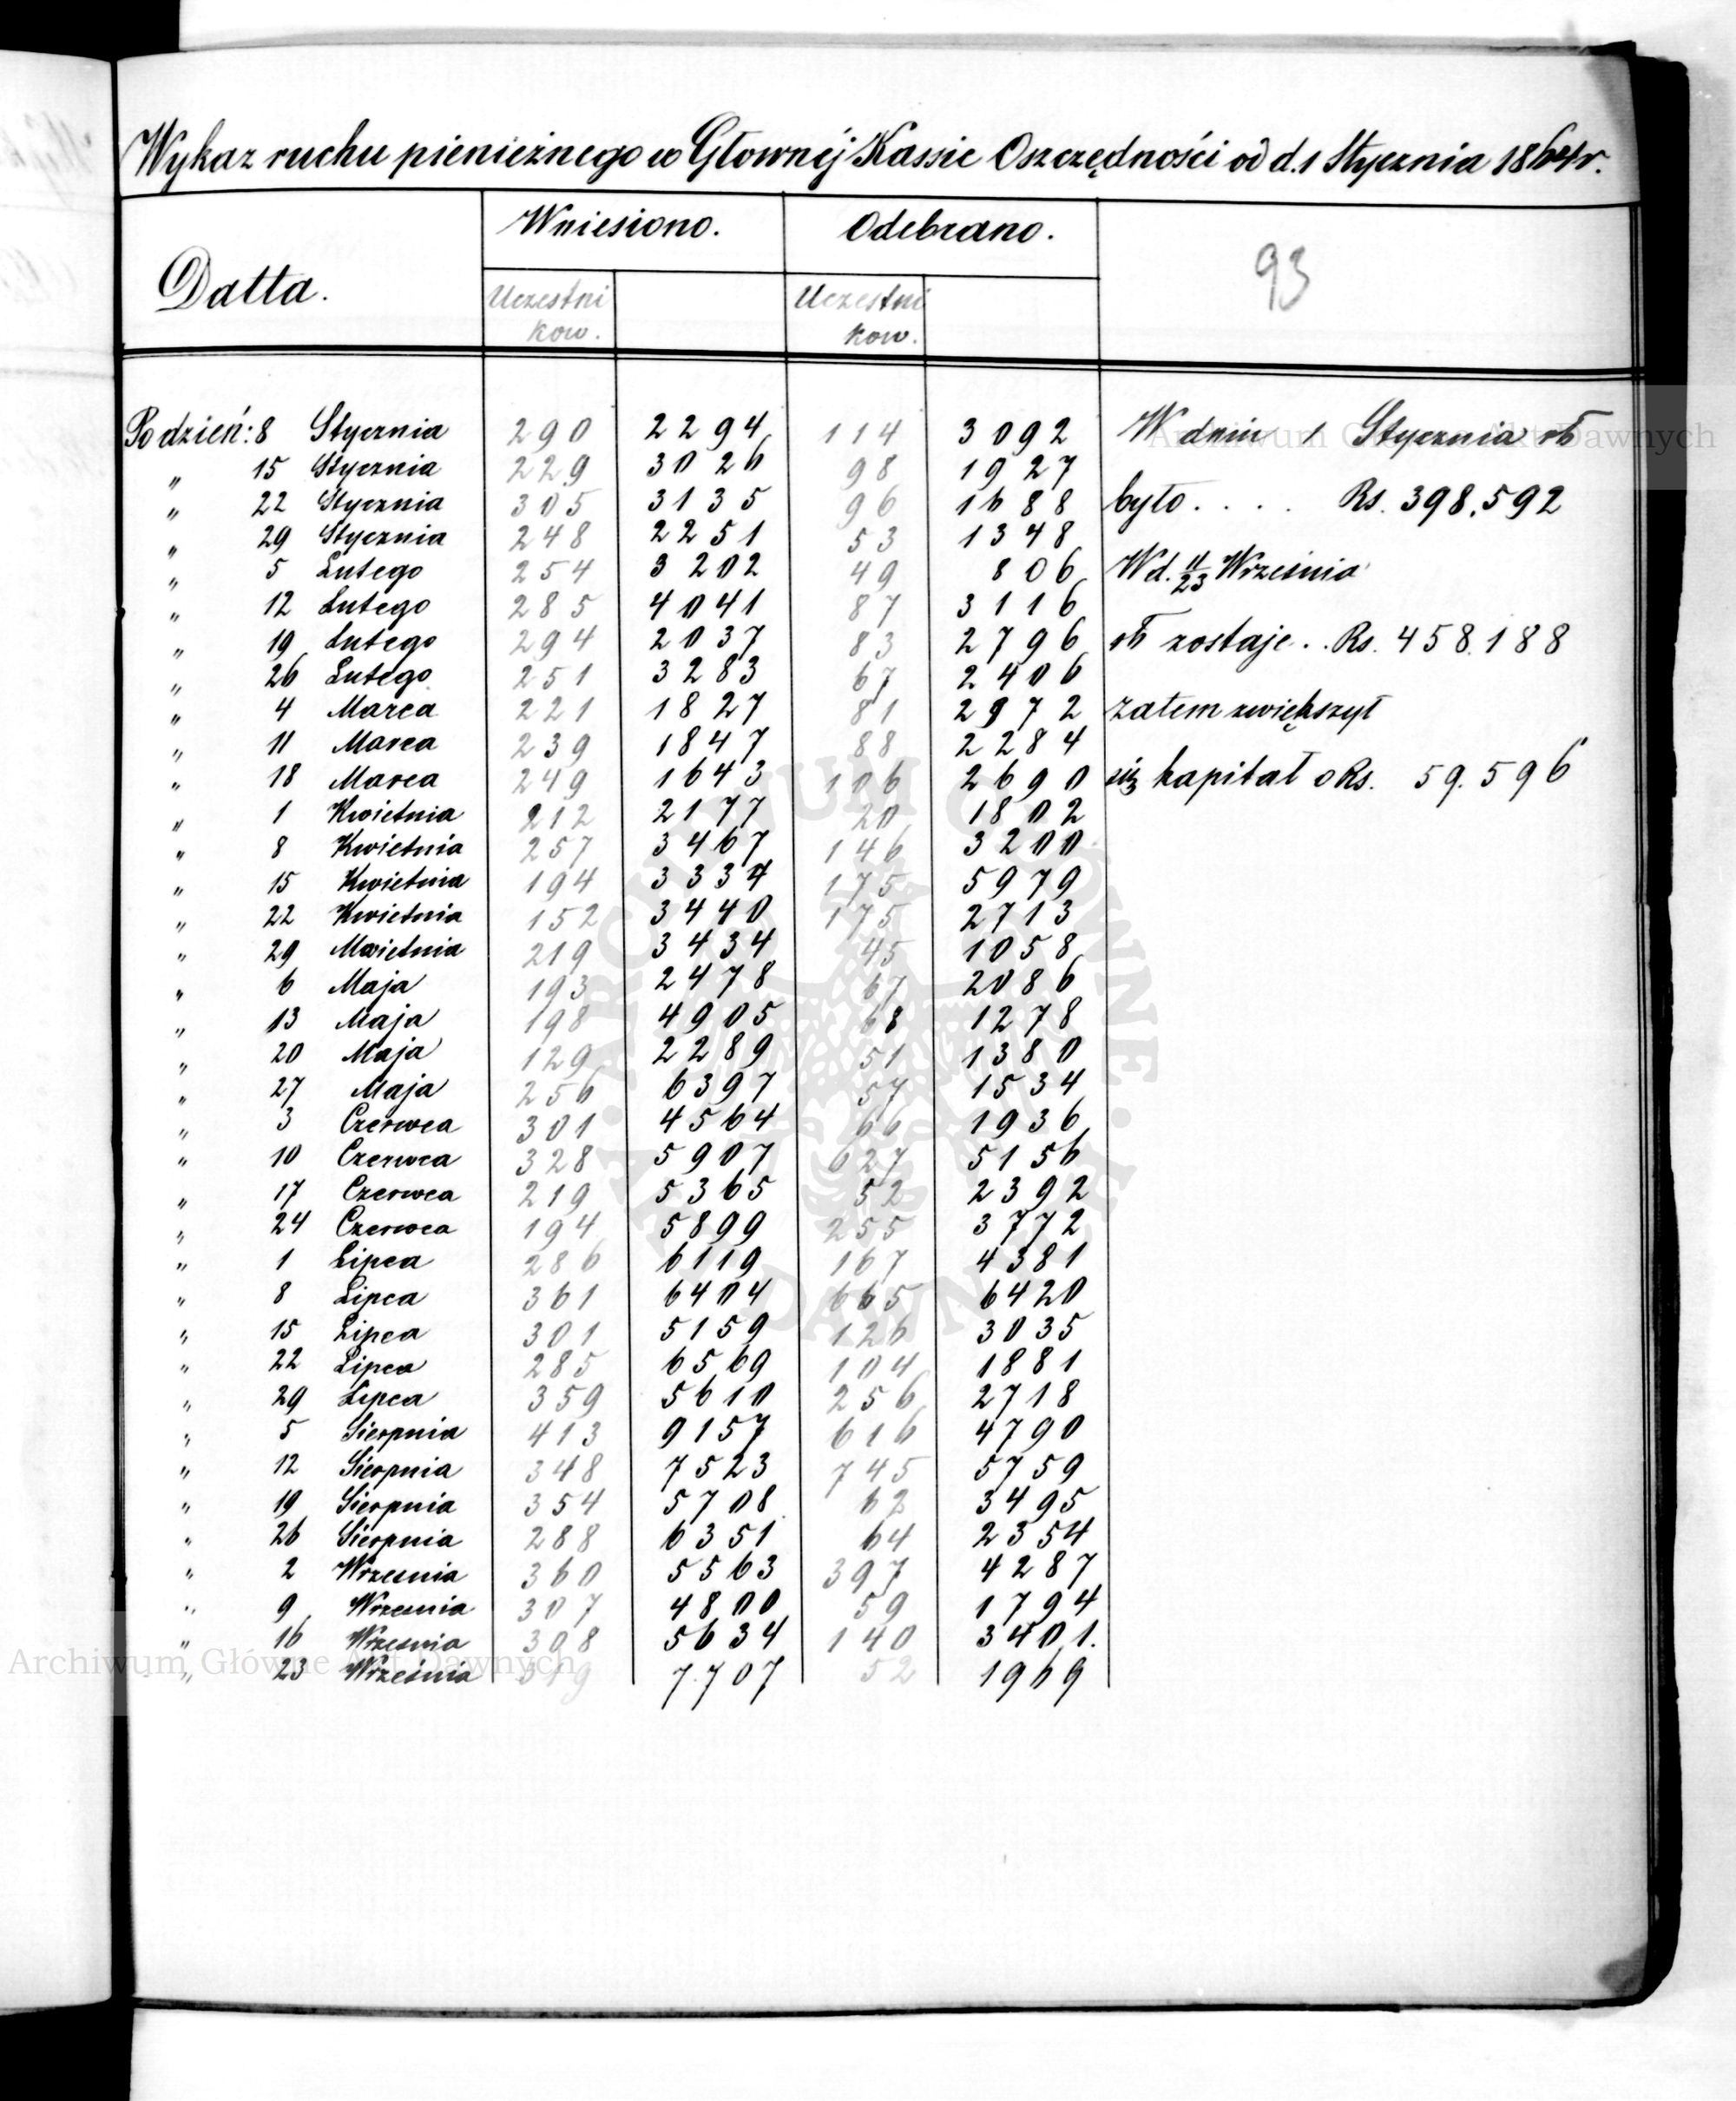 Wykaz ruchu pienieżnego w Głownéj Kassie Oszczędności od d. 1 Stycznia 1864 r.
Datta. Wniesiono. Odebrano. 93
Uczestni Uczestni
kow. kow.
Po dzień: 8 Stycznia 290 2294 114 3092 W dniu 1 Stycznia rb
" 15 Stycznia 229 3026 98 1927
" 22 Stycznia 305 3135 96 1688 było . . . . Rs. 398.592
" 29 Stycznia 248 2251 53 1348
" 5 Lutego 254 3202 49 806 W d. 11/23 Września
" 12 Lutego 285 4041 87 3116
" 19 Lutego 294 2037 83 2796 rb zostaje . . Rs. 458.188
" 26 Lutego 251 3283 67 2406
" 4 Marca 221 1827 81 2972 zatem zwiększył
" 11 Marca 239 1847 88 2284
" 18 Marca 249 1643 106 2690 się kapitał o Rs. 59.596
" 1 Kwietnia 212 2177 20 1802
" 8 Kwietnia 257 3467 146 3200
" 15 Kwietnia 194 3334 175 5979
" 22 Kwietnia 152 3440 175 2713
" 29 Kwietnia 219 3434 45 1058
" 6 Maja 193 2478 67 2086
" 13 Maja 198 4905 68 1278
" 20 Maja 129 2289 51 1380
" 27 Maja 256 6397 57 1534
" 3 Czerwca 301 4564 66 1936
" 10 Czerwca 328 5907 627 5156
" 17 Czerwca 219 5365 52 2392
" 24 Czerwca 194 5899 255 3772
" 1 Lipca 286 6119 167 4381
" 8 Lipca 361 6404 665 6420
" 15 Lipca 301 5159 126 3035
" 22 Lipca 285 6569 104 1881
" 29 Lipca 359 5610 256 2718
" 5 Sierpnia 413 9157 616 4790
" 12 Sierpnia 348 7523 745 5759
" 19 Sierpnia 354 5708 62 3495
" 26 Sierpnia 288 6351 64 2354
" 2 Wrzesnia 360 5563 397 4287
" 9 Wrzesnia 307 4800 59 1794
" 16 Wrzesnia 308 5634 140 3401.
" 23 Września 7.707 52 1969
Archiwum Główne Akt Dawnych